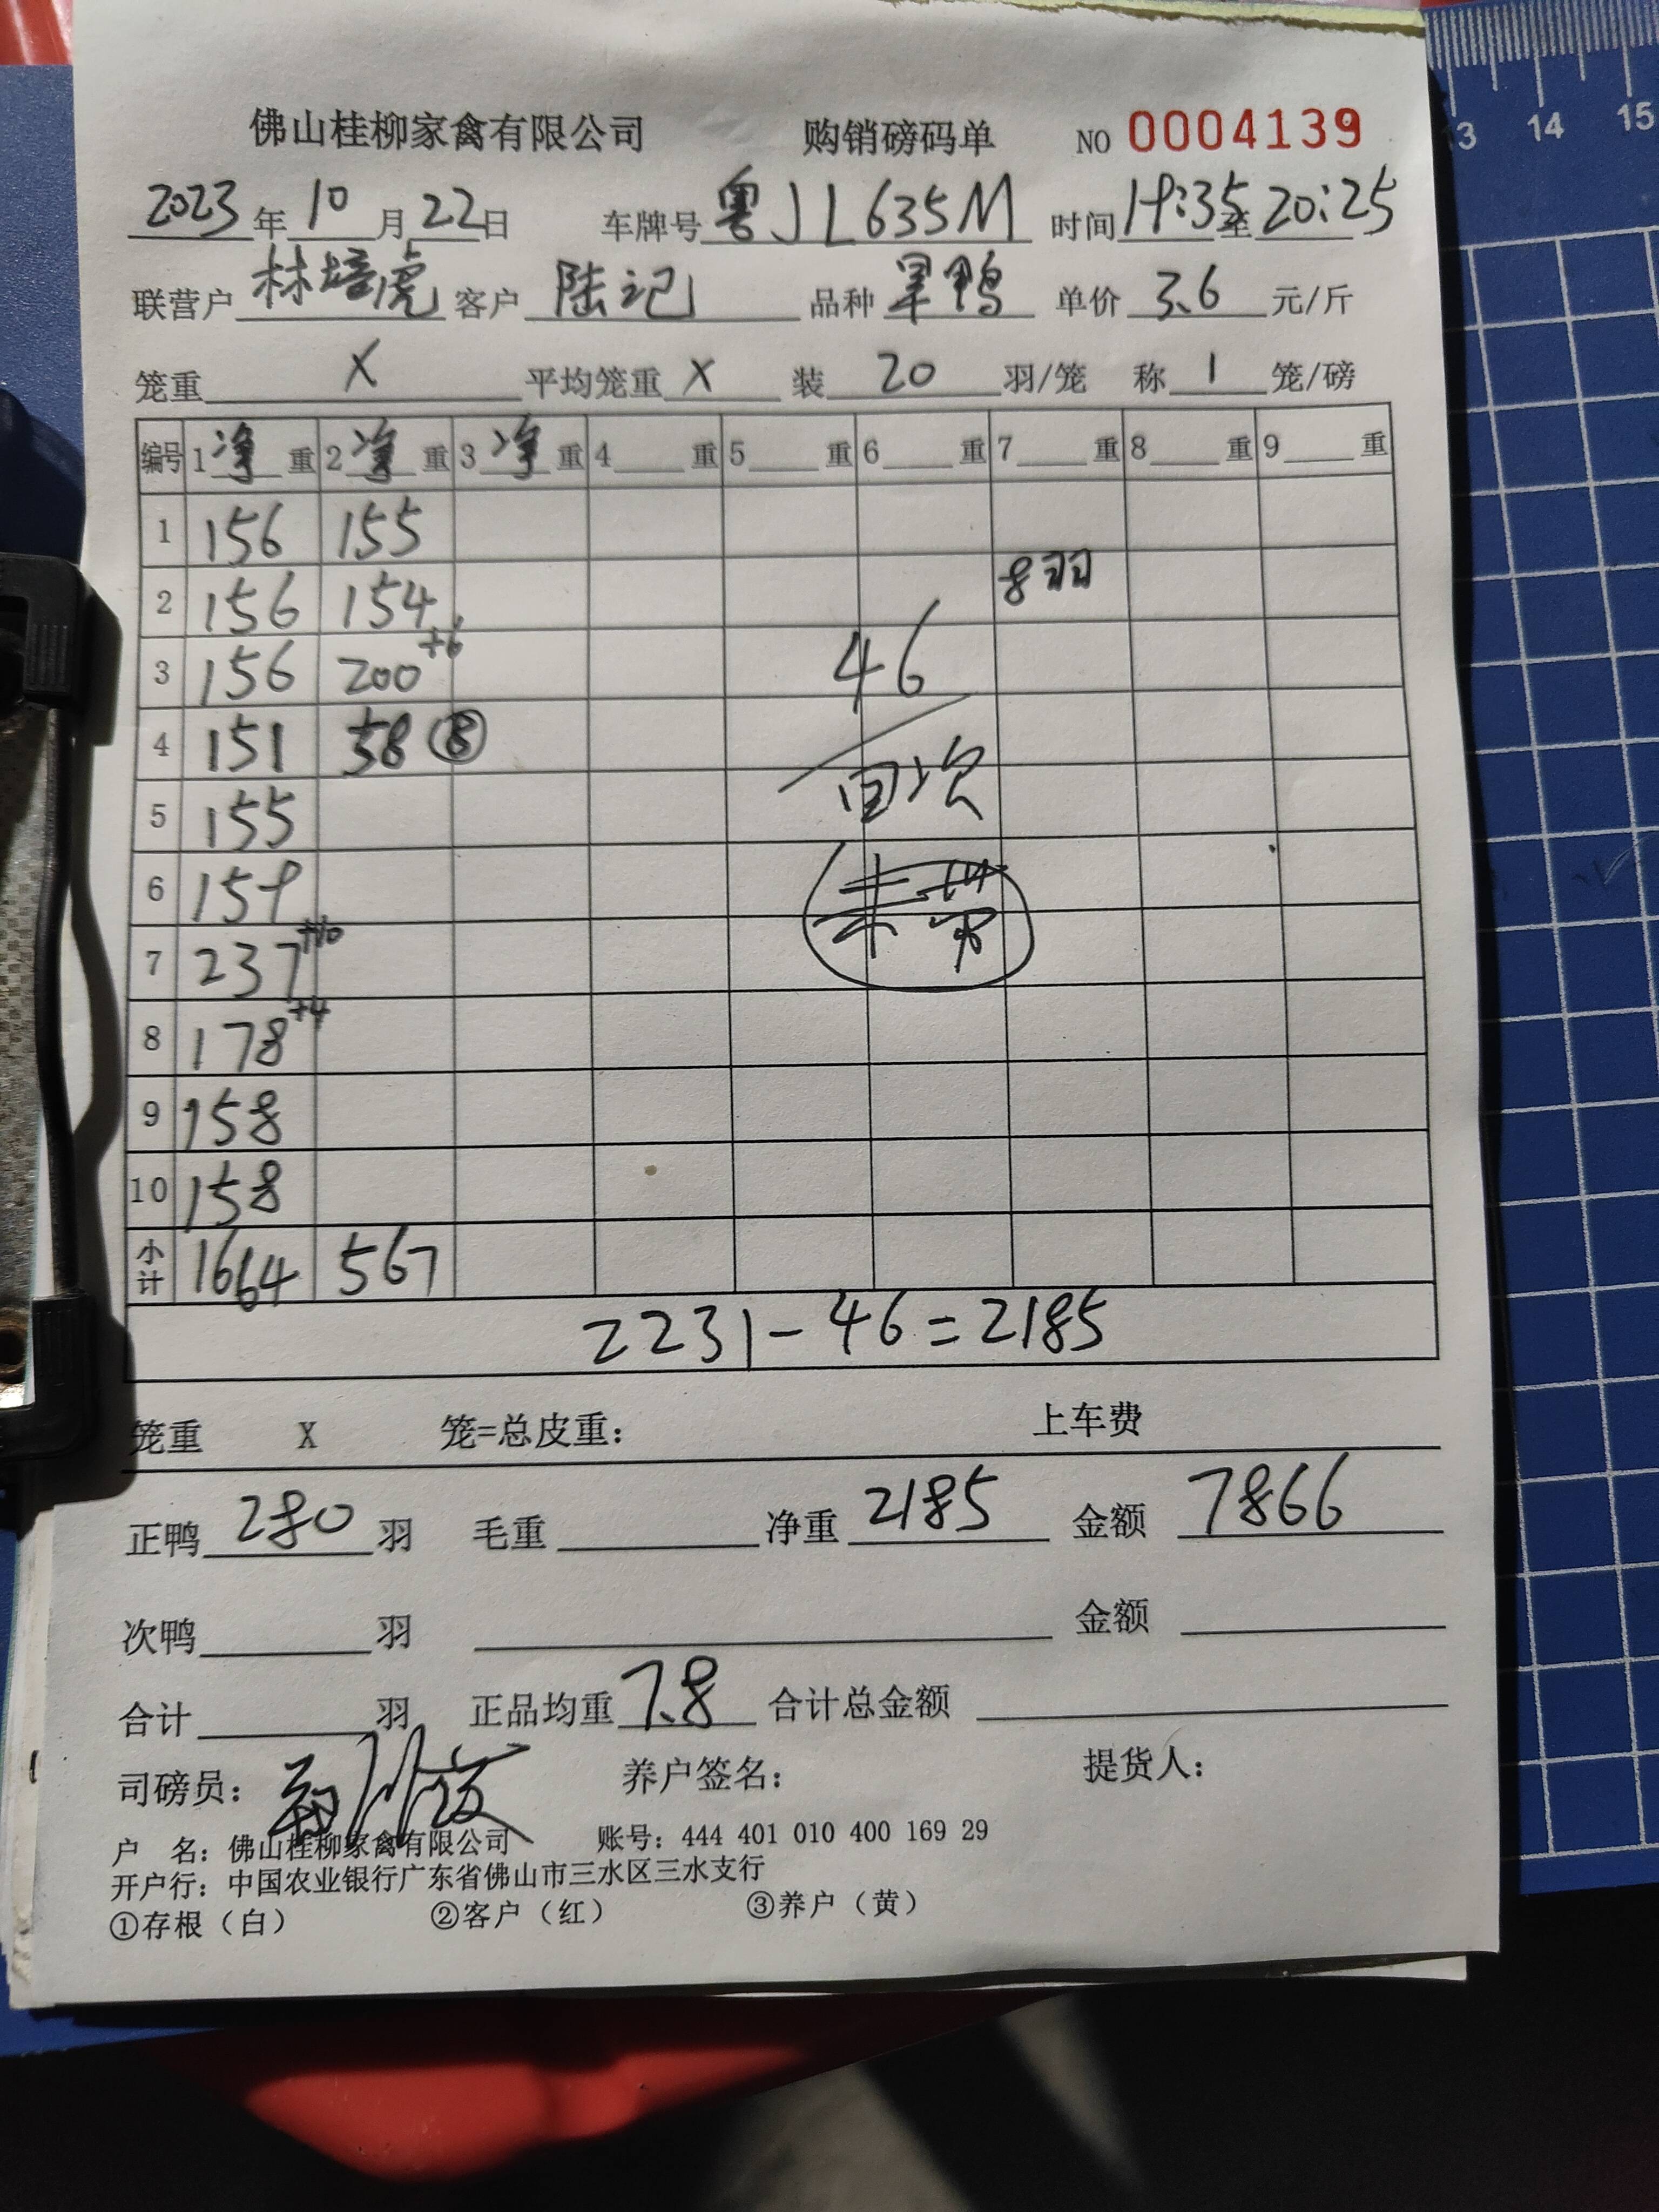 佛山桂柳家禽有限公司 购销磅码单 NO 0004139
2023年10月22日 车牌号 粤JL635M 时间 19:35至20:25
联营户 林培虎 客户 陆记 品种 旱鸭 单价 3.6 元/斤
笼重 X 平均笼重 X 装 20 羽/笼 称 1 笼/磅
编号 1净重 2净重 3净重 4 重 5 重 6 重 7 重 8 重 9 重
1 156 155
2 156 154 8羽
3 156 200+6 46
4 151 58 ⑧ 回次
5 155
6 159 未带
7 237+10
8 178+4
9 158
10 158
小计 1664 567
2231-46=2185
笼重 X 笼=总皮重: 上车费
正鸭 280 羽 毛重 净重 2185 金额 7866
次鸭 羽 金额
合计 羽 正品均重 7.8 合计总金额
司磅员: 养户签名: 提货人:
户 名: 佛山桂柳家禽有限公司 账号: 444 401 010 400 169 29
开户行: 中国农业银行广东省佛山市三水区三水支行
①存根（白） ②客户（红） ③养户（黄）
13 14 15